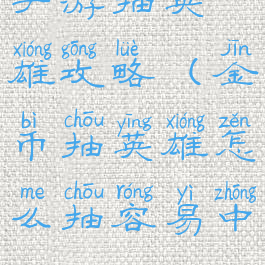 手游抽英
xióng gōng lüè jīn
雄攻略（金
bì chōu yīng xióng zěn
币抽英雄怎
me chōu róng yì zhōng
么抽容易中